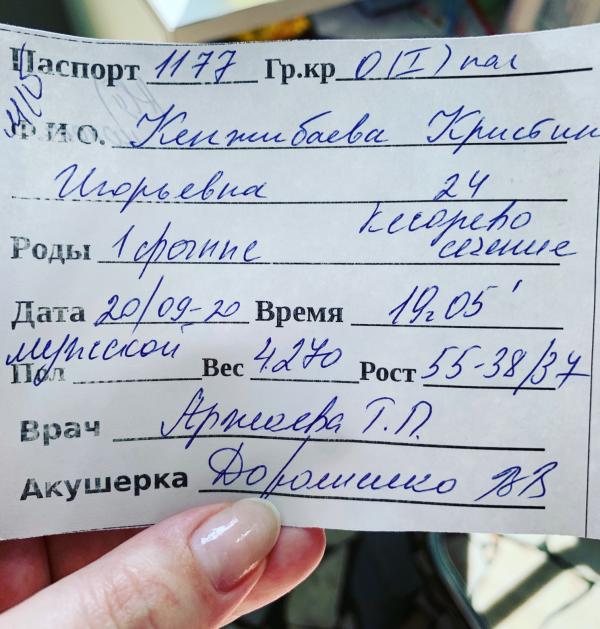 Паспорт 1177 Гр.кр O(I) пол
Ф.И.О. Кенжибаева Кристин
Игорьевна 24
Роды 1 срочные кесарево
сечение
Дата 20/09-20 Время 19г 05'
Пол мужской Вес 4.270 Рост 55-38/37
Врач Аржаева Т.П.
Акушерка Дорошенко ВВ